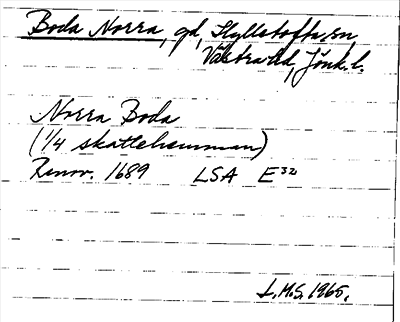 Boda Norra, gd, Hyllstofta sn,
Västra hd, Jönk. l.
Norra Boda
(1/4 skattehemman)
Renov. 1689 LSA E³²
L.M.S. 1965.